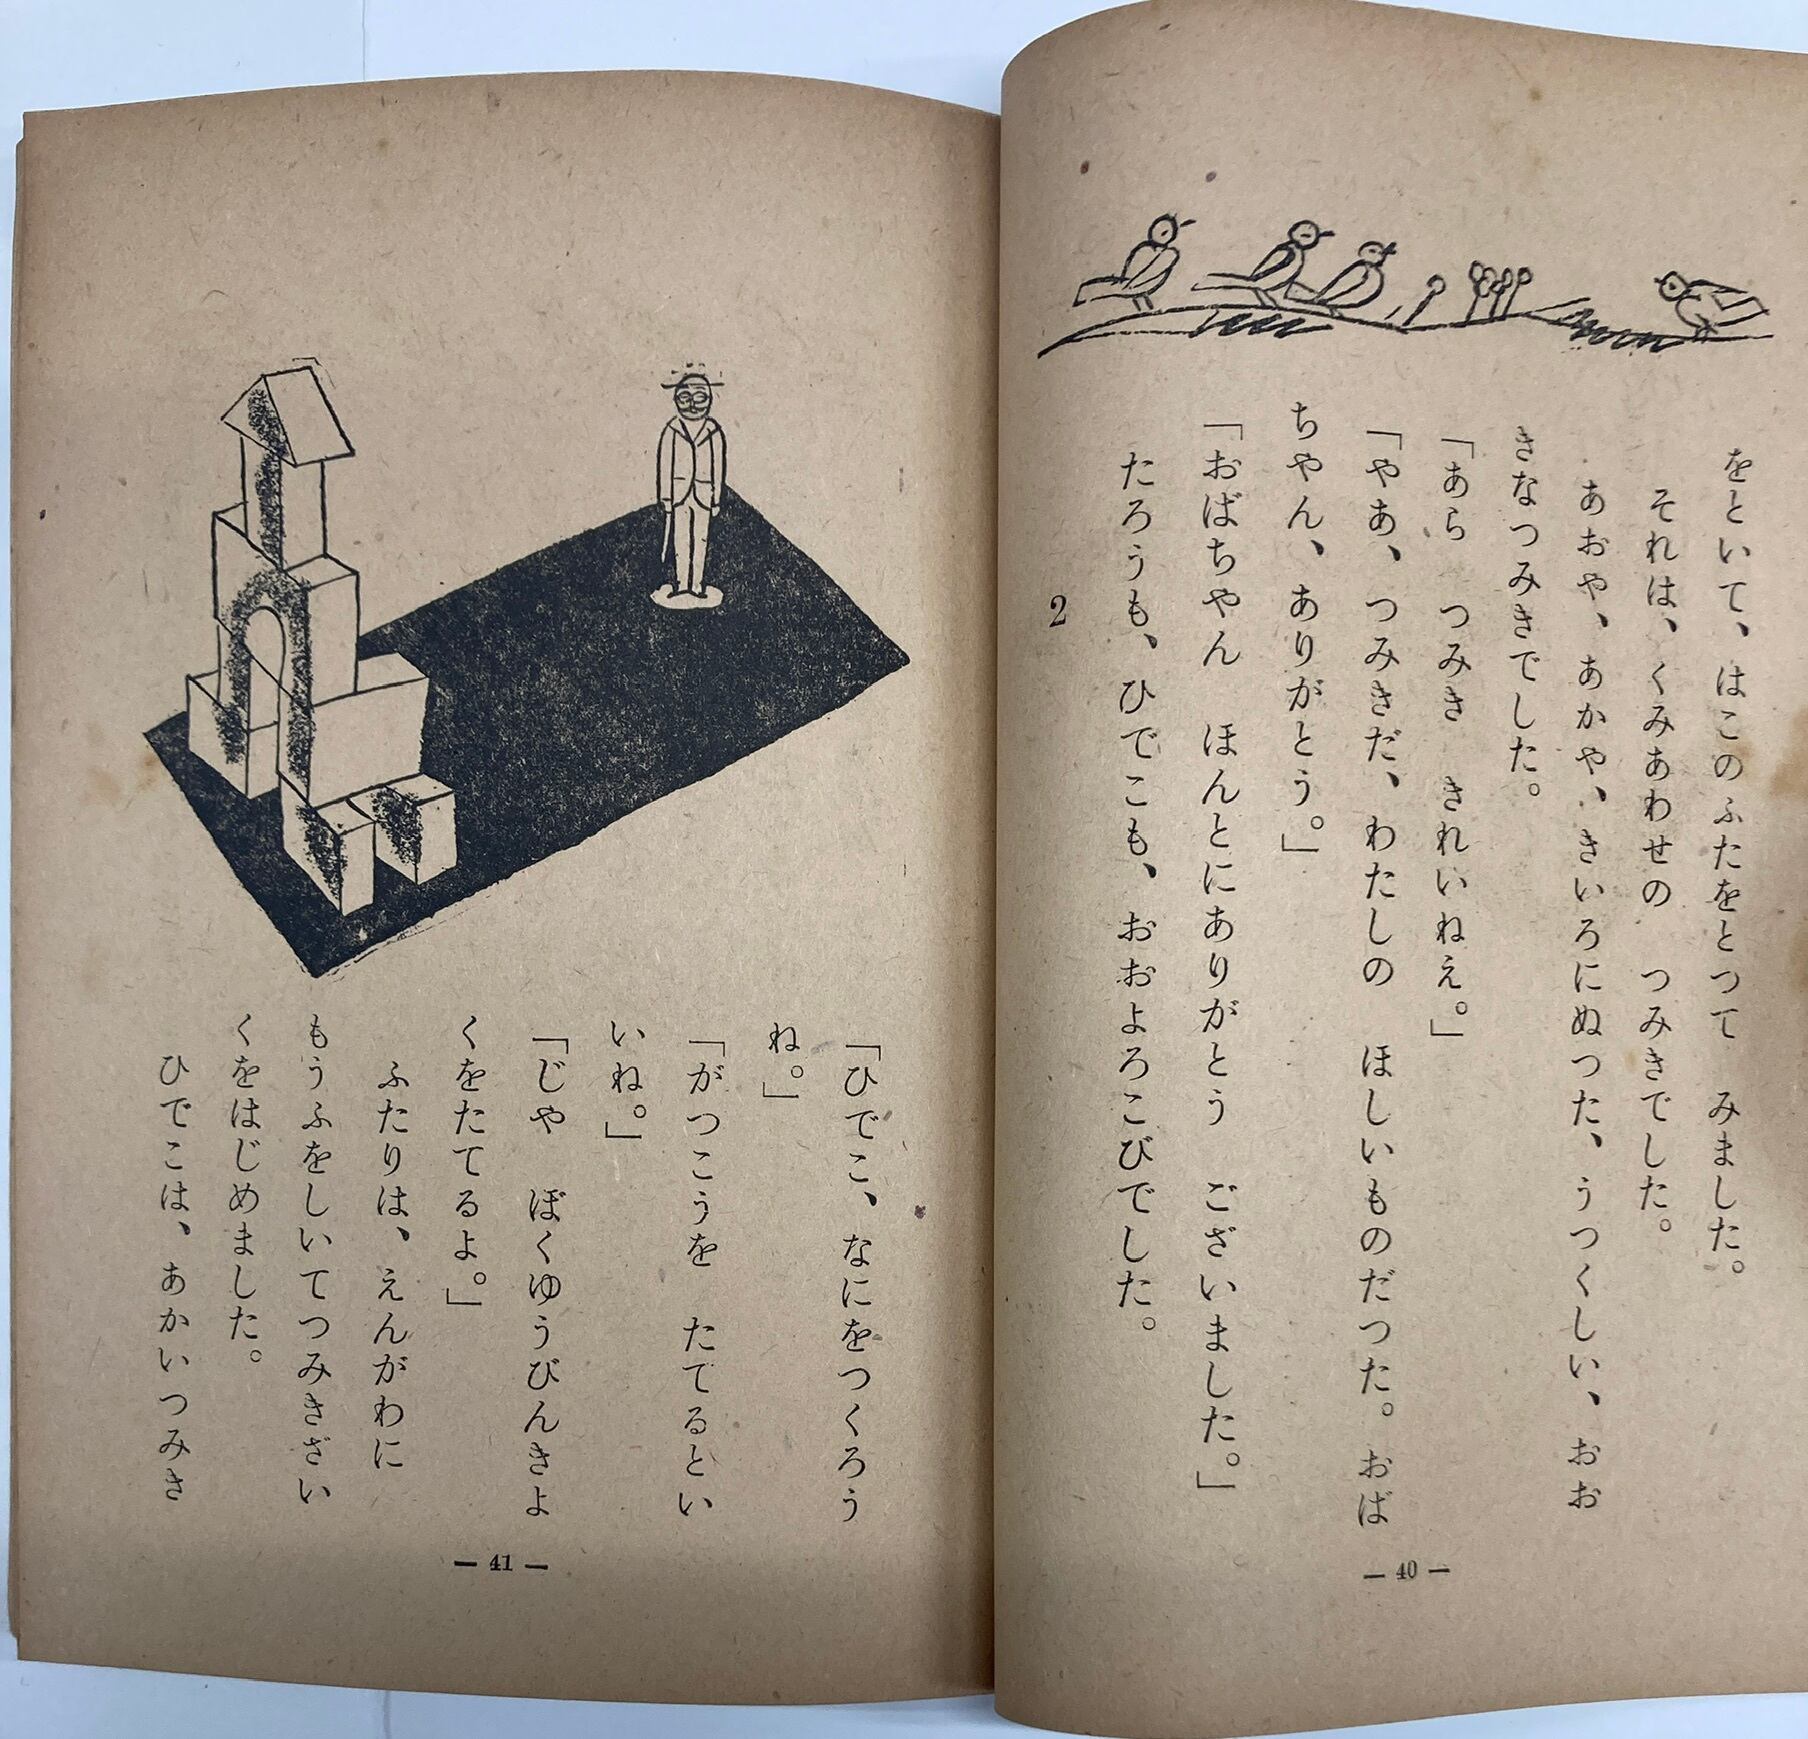 をといて、はこのふたをとつて　みました。
それは、くみあわせの　つみきでした。
あおや、あかや、きいろにぬつた、うつくしい、おお
きなつみきでした。
「あら　つみき　きれいねえ。」
「やあ、つみきだ、わたしの　ほしいものだつた。おば
ちやん、ありがとう。」
「おばちやん　ほんとにありがとう　ございました。」
たろうも、ひでこも、おおよろこびでした。
2
— 40 —
「ひでこ、なにをつくろう
ね。」
「がつこうを　たてるとい
いね。」
「じや　ぼくゆうびんきよ
くをたてるよ。」
ふたりは、えんがわに
もうふをしいてつみきざい
くをはじめました。
ひでこは、あかいつみき
— 41 —